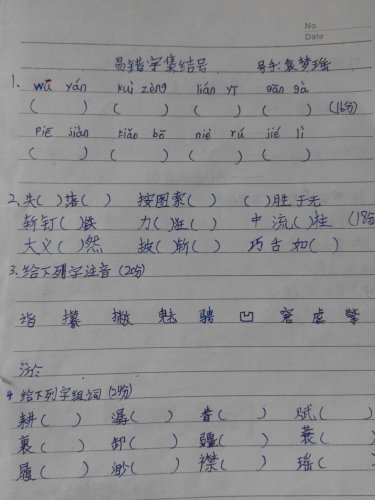 No
Date
易错字集结号 号手:袁梦瑶
1、wū yán kuì zèng lián yī gān gà
( ) ( ) ( ) ( ) (16分)
piē jiàn tiǎn bō niè rú jié lì
( ) ( ) ( ) ( )
2、失( )嬉( ) 按图索( ) ( )胜于无
斩钉( )铁 力( )狂( ) 中流( )柱 (18分
大义( )然 披( )斩( ) 巧舌如( )
3、给下列字注音(20分)
撇 魅 骋 凹 窘 虐 擎
4、给下列字组词(24分)
耕( ) 潺( ) 昔( ) 赋( )
裹( ) 卸( ) 疆( ) 蓑( )
履( ) 渺( ) 襟( ) 瑶(